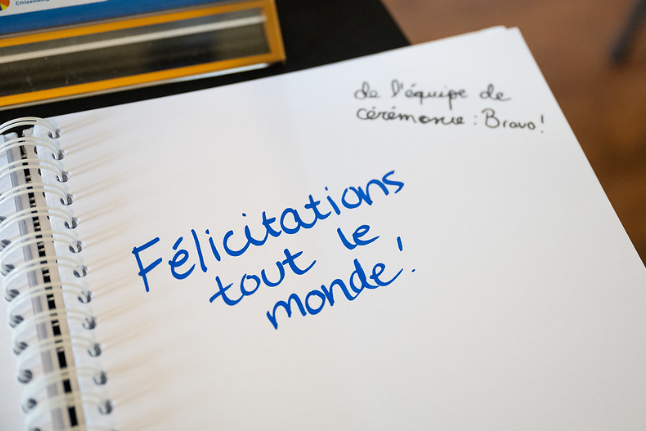 Citizenship
de l'équipe de
cérémonie : Bravo!
Félicitations
tout le
monde!